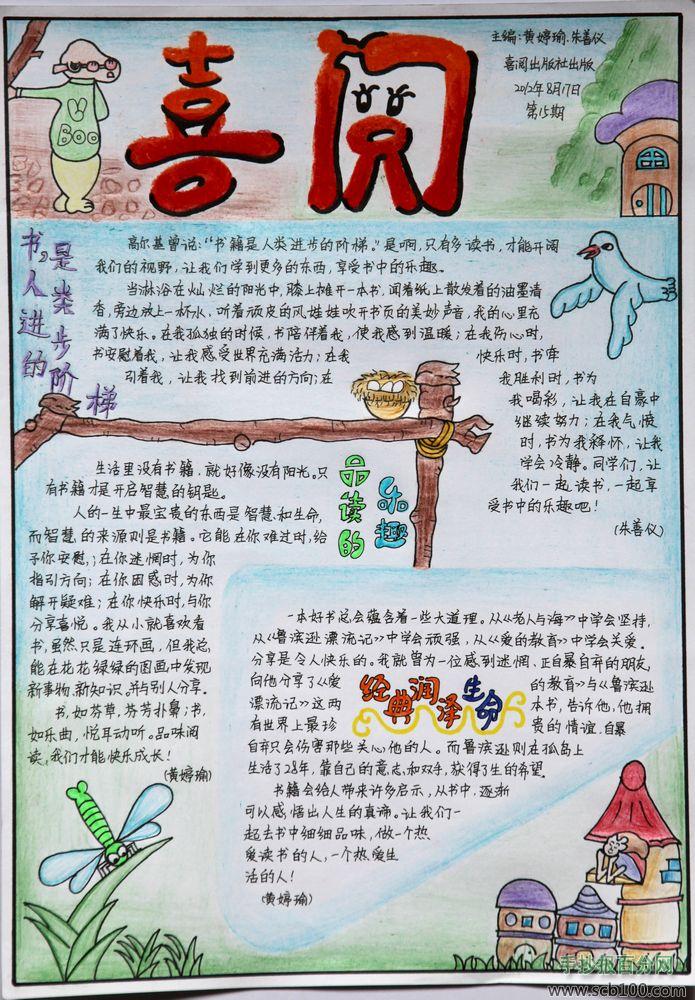 喜阅
主编:黄婷瑜.朱善仪
喜阅出版社出版
2012年8月17日
第15期
Boo
书,是
人类进步的阶梯
高尔基曾说:“书籍是人类进步的阶梯。”是啊,只有多读书,才能开阔
我们的视野,让我们学到更多的东西,享受书中的乐趣。
当淋浴在灿烂的阳光中,膝上摊开一本书,闻着纸上散发着的油墨清
香,旁边放上一杯水,听着顽皮的风娃娃吹开书页的美妙声音,我的心里充
满了快乐。在我孤独的时候,书陪伴着我,使我感到温暖;在我伤心时,
书安慰着我,让我感受世界充满活力;在我快乐时,书牵
引着我,让我找到前进的方向;在我胜利时,书为
我喝彩,让我在自豪中
继续努力;在我气愤
时,书为我释怀,让我
学会冷静。同学们,让
我们一起读书,一起享
受书中的乐趣吧!
(朱善仪)
品读的
乐趣
生活里没有书籍,就好像没有阳光。只
有书籍才是开启智慧的钥匙。
人的一生中最宝贵的东西是智慧和生命,
而智慧的来源则是书籍。它能在你难过时,给
予你安慰,;在你迷惘时,为你
指引方向;在你困惑时,为你
解开疑难;在你快乐时,与你
分享喜悦。我从小就喜欢看
书,虽然只是连环画,但我总
能在花花绿绿的图画中发现
新事物,新知识,并与别人分享。
书,如芬草,芬芳扑鼻;书,
如乐曲,悦耳动听。品味阅
读,我们才能快乐成长!
(黄婷瑜)
经典润泽生命
一本好书总会蕴含着一些大道理。从《老人与海》中学会坚持,
从《鲁滨逊漂流记》中学会顽强,从《爱的教育》中学会关爱。
分享是令人快乐的。我就曾为一位感到迷惘,正自暴自弃的朋友,
向他分享了《爱的教育》与《鲁滨逊
漂流记》这两本书,告诉他,他拥
有世界上最珍贵的情谊,自暴
自弃只会伤害那些关心他的人。而鲁滨逊则在孤岛上
生活了28年,靠自己的意志和双手,获得了生的希望。
书籍会给人带来许多启示,从书中,逐渐
可以感悟出人生的真谛。让我们一
起去书中细细品味,做一个热
爱读书的人,一个热爱生
活的人!
(黄婷瑜)
手抄报百分网
www.scb100.com